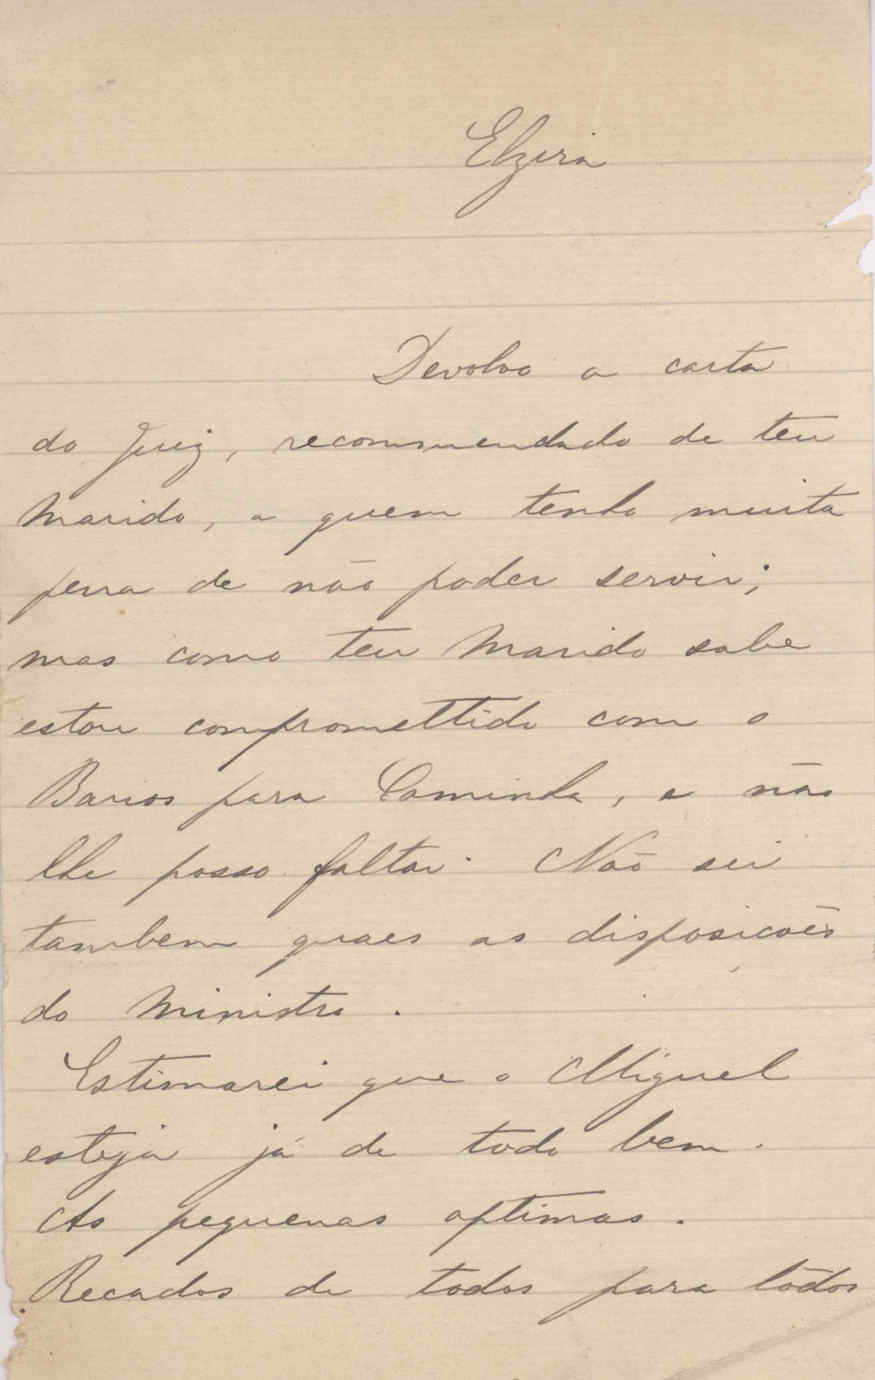 Elzira
Devolvo a carta
do Juiz, recommendado de teu
Marido, a quem tenho muita
pena de não poder servir;
mas como teu Marido sabe
estou compromettido com o
para Caminha, e não
lhe posso faltar. Não sei
tambem quaes as disposições
do Ministro.
Estimarei que o Miguel
esteja já de todo bem.
As pequenas optimas.
Recados de todos para tôdos